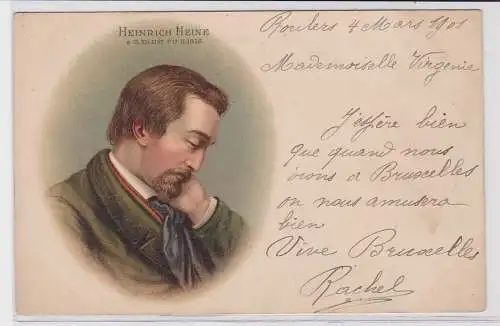 HEINRICH HEINE
Roulers 4 Mars 1901
Mademoiselle Virgenie
J'espère bien
que quand nous
irons a Bruxcelles
on nous amusera
bien
Vive Bruxcelles
Rachel